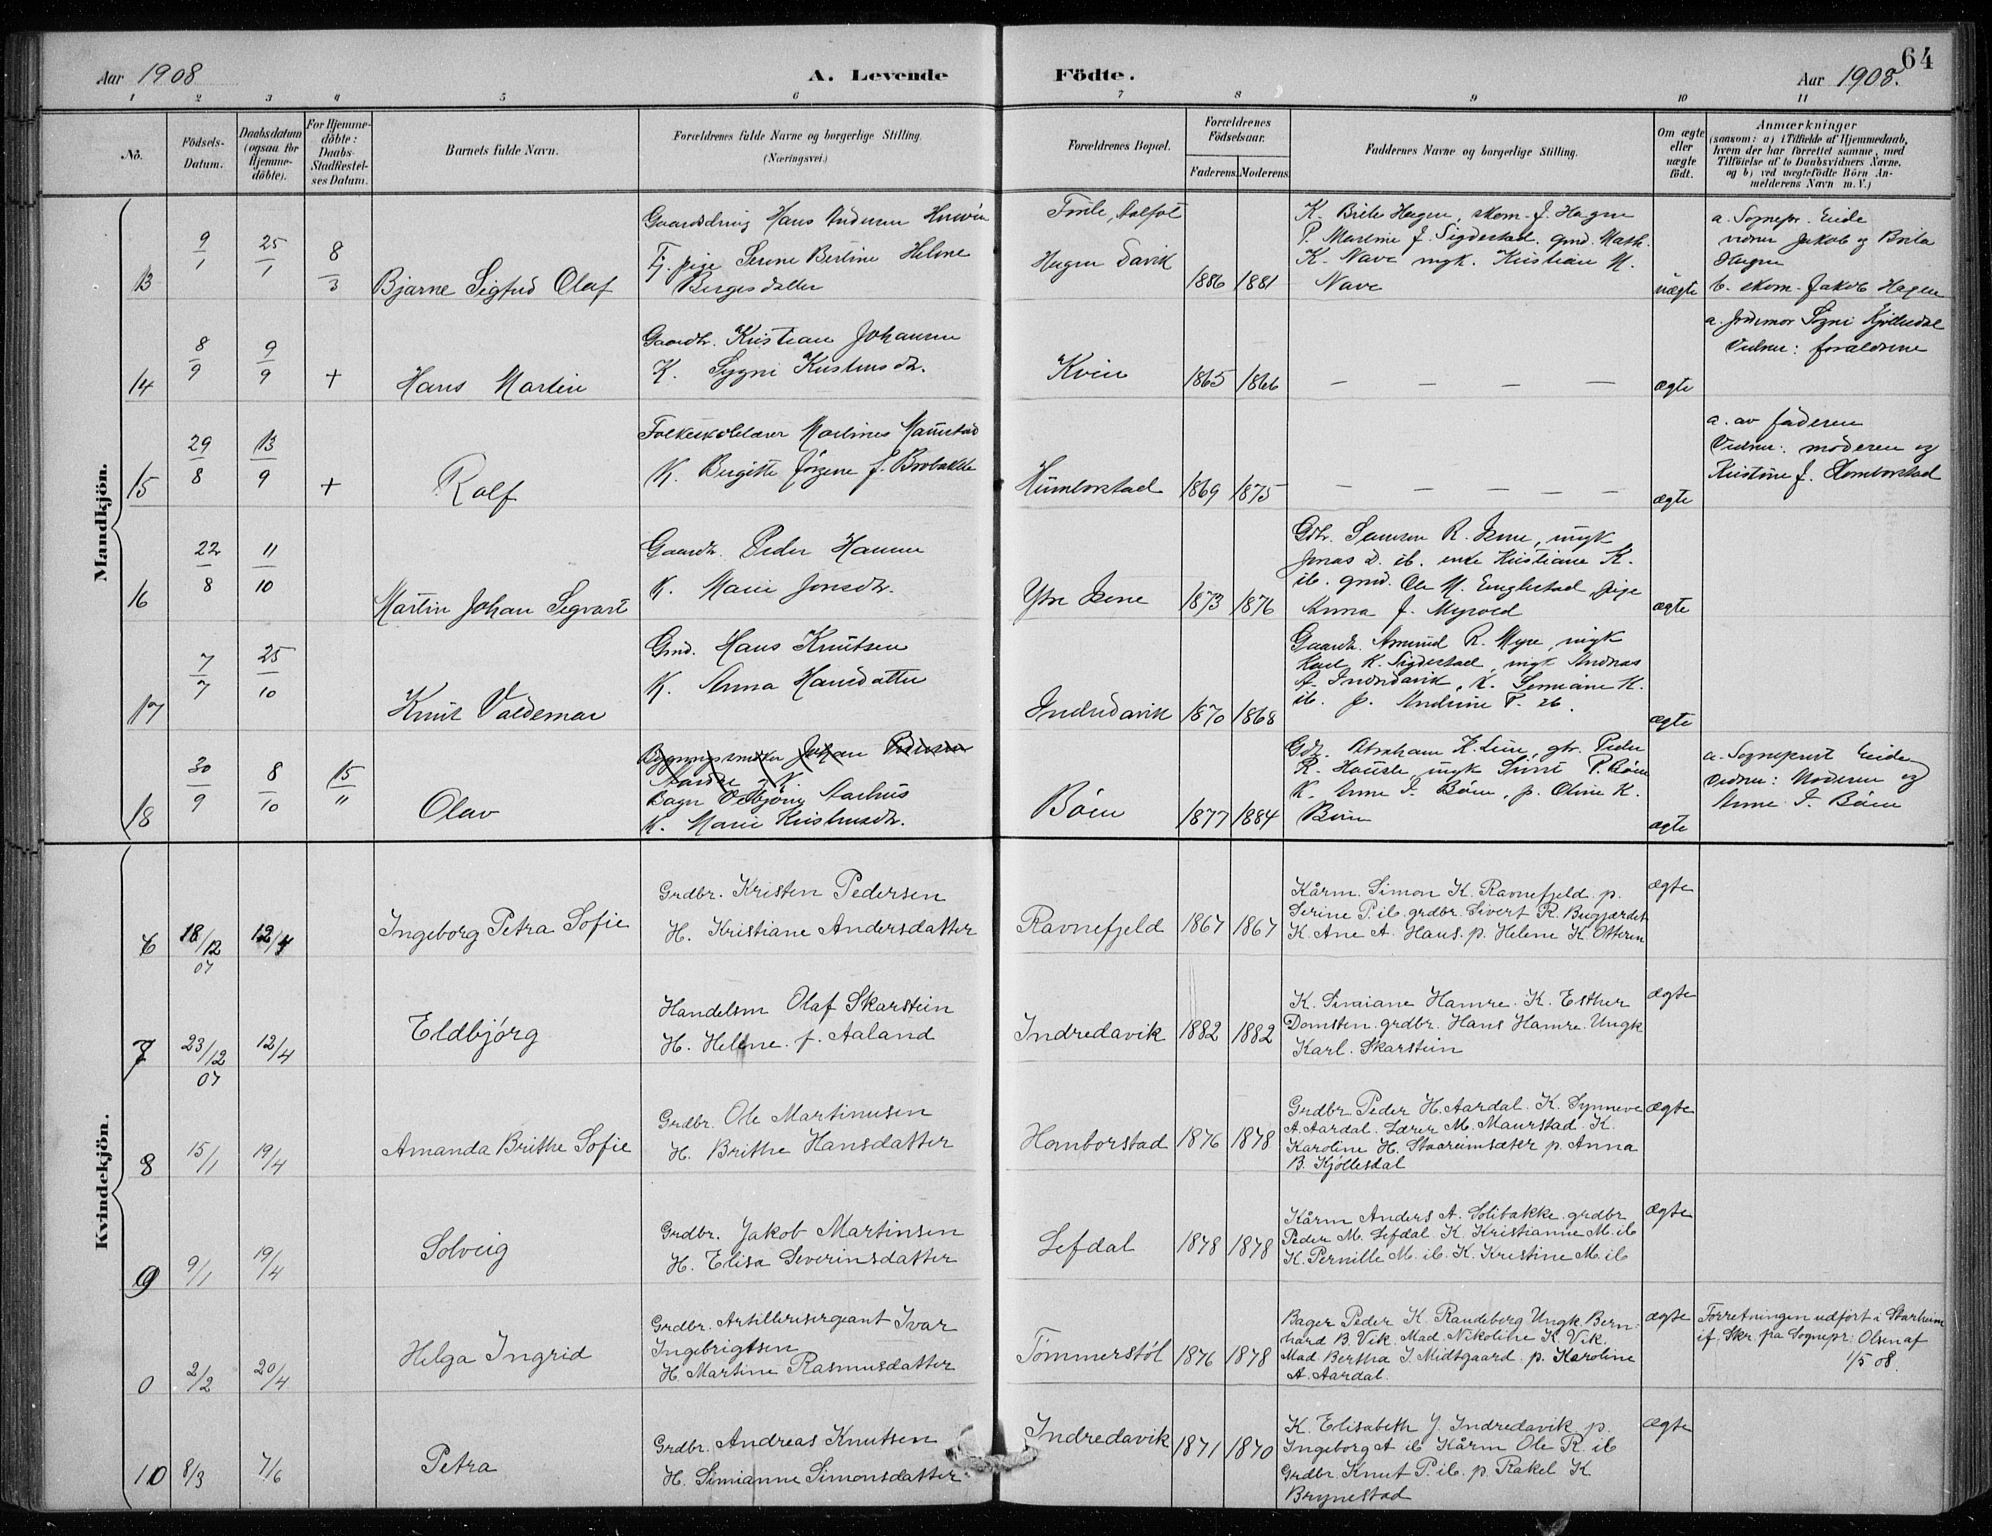 64
Aar 1908 A. Levende Födte. Aar 1908.
1 2 3 4 5 6 7 8 9 10 11
No.
Födsels-
Datum.
Daabsdatum
(ogsaa for
Hjemme-
döbte).
For Hjemme-
döbte:
Daabs-
Stadfæstel-
ses Datum.
Barnets fulde Navn.
Forældrenes fulde Navne og borgerlige Stilling.
(Næringsvei.)
Forældrenes Bopæl.
Forældrenes
Födselsaar.
Faderens. Moderens.
Faddernes Navne og borgerlige Stilling.
Om ægte
eller
uægte
födt.
Anmærkninger
(saasom: a) i Tilfælde af Hjemmedaab,
hvem der har forrettet samme, med
Tilföielse af to Daabsvidners Navne,
og b) ved uægtefödte Börn An-
melderens Navn m. V.)
Mandkjön.
13 9/1 25/1 8/3 Bjarne Sigfrid Olaf
Hans Andersen
Tj. pige Serine Bertine Helene
Bergesdatter
Hagen Davik
1886 1881
K. Brite Hagen, skom. J. Hagen
P. Martine J. Sigdestad, gmd. Math.
K. Nave ungk. Kristian M.
Nave
uægte
a. Sognepr. Eide
vidner Jakob og Brita
Hagen
b. skom. Jakob Hagen
14 8/9 9/9 + Hans Martin
Gaardbr. Kristian Johansen
K.
Kvien
1865 1866
— — — —
ægte
a. jordmor Kjöllesdal
Vidner: forældrene
15 29/8 13/9 + Rolf
Folkeskolelærer Martines Maurstad
K. Birgitte Jörgine f. Brobakke
Humborstad
1869 1875
— — — — —
ægte
a. av faderen
Vidner: moderen og
Kristine J. Homborstad
16 22/8 11/10 Martin Johan Segvart
Gaardbr. Peder Hansen
K. Marie Jonsdtr.
Ytre Isene
1873 1876
Gbr. Samson R. Isene, ungk
Jonas D. ib. enke Kristiane K.
ib. gmd. Ole M. Englestad pige
Anna J. Myrvold
ægte
17 7/7 25/10 Knut Valdemar
Gmd. Hans Knutsen
K. Anna Hansdatter
Indredavik
1870 1868
Gaardbr. Amund R. Myre, ungk
Karl K. Sigdestad, ungk Andreas
A. Indredavik, K. Semiane K.
ib. p. Andrine P. ib.
ægte
18 30/9 8/10 15/11 Olav
Johan
Aarhus
K. Marie
Böen
1877 1884
Gbr. Abraham K. Lune, gbr. Peder
R. Hausle, ungk P. Böen
K. Anne J. Böen, p. Oline K.
Böen
ægte
a. Sogneprest Eide
Vidner: Moderen og
Anne J. Böen
Kvindekjön.
6 18/12 07 12/4 Ingeborg Petra Sofie
Grdbr. Kristen Pedersen
H. Kristiane Andersdatter
Ravnefjeld
1867 1867
Kårm. Simon K. Ravnefjeld p.
Serine P. ib. grdbr. Sivert R. Bugjærdet
K. Ane A. Haus. p. Helene K. Otteren
ægte
7 23/12 07 12/4 Eldbjörg
Handelsm Olaf Skarstein
H. Helene f. Aaland
Indredavik
1882 1882
K. Simiane Hamre. K. Esther
Domsten. grdbr. Hans Hamre. Ungk
Karl. Skarstein
ægte
8 15/1 19/4 Amanda Brithe Sofie
Grdbr. Ole Martinusen
H. Brithe Hansdatter
Homborstad
1876 1878
Grdbr Peder H. Aardal. K. Synneve
A. Aardal. Lærer M. Maurstad K.
Karoline H. Staareimsæter p. Anna
B. Kjöllesdal
ægte
9 9/1 19/4 Solveig
Grdbr. Jakob Martinsen
H. Elisa Severinsdatter
Lefdal
1878 1878
Kårm Anders A. Solibakke. grdbr
Peder M. Lefdal. K Kristianne M. ib
K. Pernille M. ib. K. Kristine M. ib
ægte
0 2/2 20/4 Helga Ingrid
Grdbr. Artillerisergeant Ivar
Ingebrigtsen
H. Martine Rasmusdatter
Tömmerstöl
1876 1878
Bager Peder K. Randeberg Ungk Bern-
hard B. Vik. Mad. Nikoline K. Vik.
Mad Bertha J. Midtgaard. p. Karoline
A. Aardal.
ægte
Forretningen udfört i Starheim
if. Skr. fra Sognepr. Olsen af
1/5 08.
10 8/3 7/6 Petra
Grdbr. Andreas Knutsen
H. Simianne Simonsdatter
Indredavik
1871 1870
K. Elisabeth J. Indredavik p.
Ingeborg A ib Kårm Ole R. ib
Grdbr. Knut P. ib. p. Rakel K
Brynestad
ægte